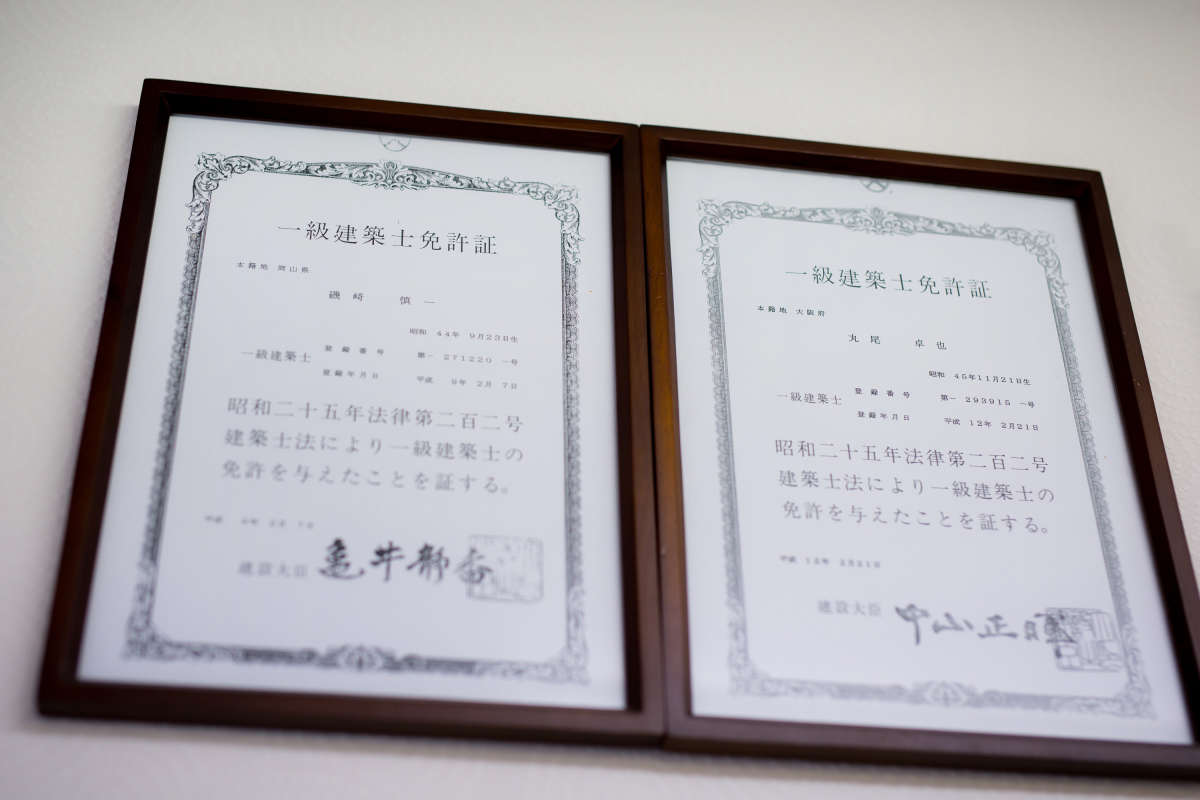 一級建築士免許証
本籍地 岡山県
磯崎 慎一
昭和 44年 9月23日生
一級建築士
登録番号 第－ 271220 －号
登録年月日 平成 9年 2月 7日
昭和二十五年法律第二百二号
建築士法により一級建築士の
免許を与えたことを証する。
平成 9年 2月 7日
建設大臣 亀井静香
一級建築士免許証
本籍地 大阪府
丸尾 卓也
昭和 45年11月21日生
一級建築士
登録番号 第－ 293915 －号
登録年月日 平成 12年 2月21日
昭和二十五年法律第二百二号
建築士法により一級建築士の
免許を与えたことを証する。
平成 12年 2月21日
建設大臣 中山正暉